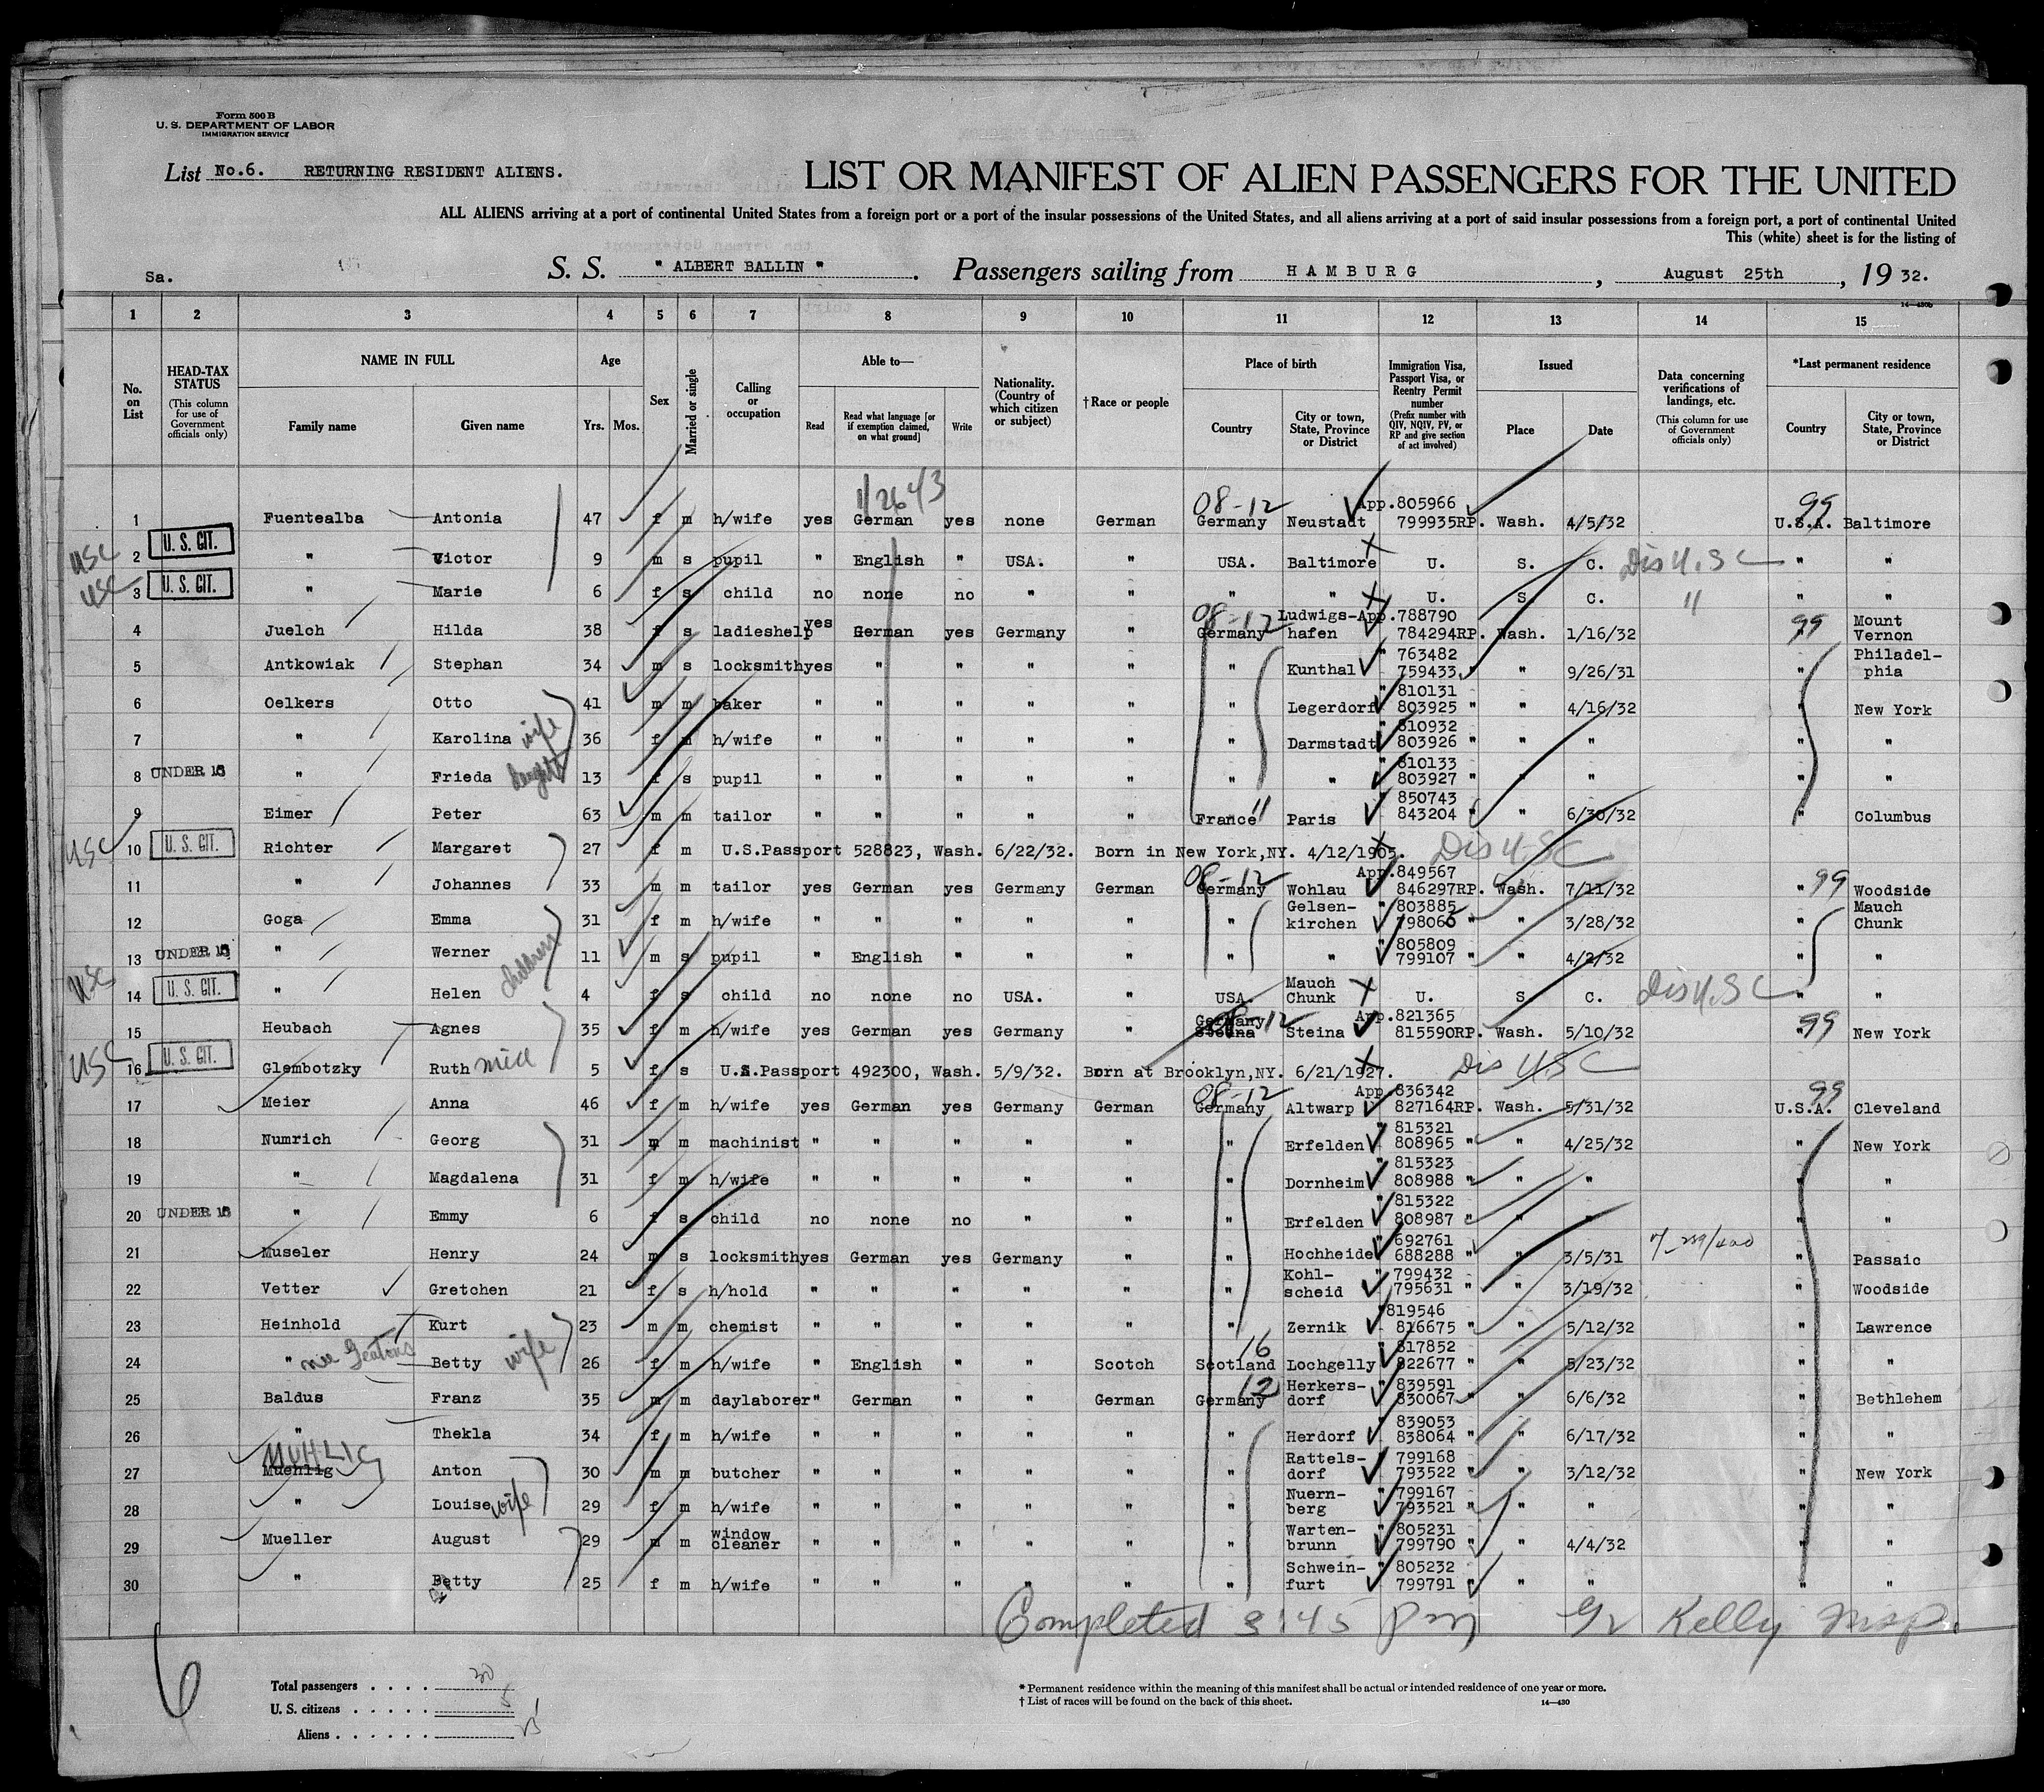 Form 500 B
U. S. DEPARTMENT OF LABOR
IMMIGRATION SERVICE
List No.6. RETURNING RESIDENT ALIENS.
LIST OR MANIFEST OF ALIEN PASSENGERS FOR THE UNITED
ALL ALIENS arriving at a port of continental United States from a foreign port or a port of the insular possessions of the United States, and all aliens arriving at a port of said insular possessions from a foreign port, a port of continental United
This (white) sheet is for the listing of
Sa. S. S. " ALBERT BALLIN " . Passengers sailing from HAMBURG , August 25th , 19 32.
14—430b
1 2 3 4 5 6 7 8 9 10 11 12 13 14 15
No. on List
HEAD-TAX STATUS (This column for use of Government officials only)
NAME IN FULL
Family name Given name
Age
Yrs. Mos.
Sex
Married or single
Calling or occupation
Able to—
Read Read what language [or if exemption claimed, on what ground] Write
Nationality. (Country of which citizen or subject)
†Race or people
Place of birth
Country City or town, State, Province or District
Immigration Visa, Passport Visa, or Reentry Permit number (Prefix number with QIV, NQIV, PV, or RP and give section of act involved)
Issued
Place Date
Data concerning verifications of landings, etc. (This column for use of Government officials only)
*Last permanent residence
Country City or town, State, Province or District
1/2643 08-12 App.805966 99
1 Fuentealba Antonia 47 f m h/wife yes German yes none German Germany Neustadt 799935RP. Wash. 4/5/32 U.S.A. Baltimore
USC 2 U. S. CIT. " Victor 9 m s pupil " English " USA. " USA. Baltimore U. S. C. Dis U.S C " "
USC 3 U. S. CIT. " Marie 6 f s child no none no " " " " U. S. C. " " "
08-12 Ludwigs-App.788790 Mount
4 Juelch Hilda 38 f s ladieshelp yes German yes Germany " Germany hafen 784294RP. Wash. 1/16/32 99 Vernon
" 763482 Philadel-
5 Antkowiak Stephan 34 m s locksmith yes " " " " " Kunthal 759433 " " 9/26/31 " phia
" 810131
6 Oelkers Otto 41 m m baker " " " " " " Legerdorf 803925 " " 4/16/32 " New York
" 810932
7 " Karolina wife 36 f m h/wife " " " " " " Darmstadt 803926 " " " " "
" 810133
8 UNDER 16 " Frieda daughter 13 f s pupil " " " " " " " 803927 " " " " "
" 850743
9 Eimer Peter 63 m m tailor " " " " " France " Paris 843204 " " 6/30/32 " Columbus
USC 10 U. S. CIT. Richter Margaret 27 f m U.S.Passport 528823, Wash. 6/22/32. Born in New York,NY. 4/12/1905. Dis U.S C
08-12 App.849567
11 " Johannes 33 m m tailor yes German yes Germany German Germany Wohlau 846297RP. Wash. 7/11/32 " 99 Woodside
Gelsen- " 803885 Mauch
12 Goga Emma 31 f m h/wife " " " " " " kirchen 798066 " " 3/28/32 Chunk
" 805809
13 UNDER 16 " Werner children 11 m s pupil " English " " " " " 799107 " " 4/2/32 " "
Mauch
USC 14 U. S. CIT. " Helen 4 f s child no none no USA. " USA. Chunk U. S. C. Dis U.S C " "
Germany 08-12 App.821365
15 Heubach Agnes 35 f m h/wife yes German yes Germany " Steina Steina 815590RP. Wash. 5/10/32 99 New York
USC 16 U. S. CIT. Glembotzky Ruth niece 5 f s U.S.Passport 492300, Wash. 5/9/32. Born at Brooklyn,NY. 6/21/1927. Dis U.S C
08-12 App 836342 99
17 Meier Anna 46 f m h/wife yes German yes Germany German Germany Altwarp 827164RP. Wash. 5/31/32 U.S.A. Cleveland
" 815321
18 Numrich Georg 31 m m machinist " " " " " " Erfelden 808965 " " 4/25/32 " New York
" 815323
19 " Magdalena 31 f m h/wife " " " " " " Dornheim 808988 " " " " "
" 815322
20 UNDER 16 " Emmy 6 f s child no none no " " " Erfelden 808987 " " " " "
" 692761
21 Museler Henry 24 m s locksmith yes German yes Germany " " Hochheide 688288 " " 3/5/31 " Passaic
Kohl- " 799432
22 Vetter Gretchen 21 f s h/hold " " " " " " scheid 795631 " " 3/19/32 " Woodside
"819546
23 Heinhold Kurt 23 m m chemist " " " " " " Zernik 816675 " " 5/12/32 " Lawrence
16 " 817852
24 " nee Betty wife 26 f m h/wife " English " " Scotch Scotland Lochgelly 822677 " " 5/23/32 " "
12 Herkers- " 839591
25 Baldus Franz 35 m m daylaborer " German " " German Germany dorf 830067 " " 6/6/32 " Bethlehem
" 839053
26 " Thekla 34 f m h/wife " " " " " " Herdorf 838064 " " 6/17/32 " "
MUHLIG Rattels- " 799168
27 Muehlig Anton 30 m m butcher " " " " " " dorf 793522 " " 3/12/32 " New York
Nuern- " 799167
28 " Louise wife 29 f m h/wife " " " " " " berg 793521 " " " " "
window Warten- " 805231
29 Mueller August 29 m m cleaner " " " " " " brunn 799790 " " 4/4/32 " "
Schwein- " 805232
30 " Betty 25 f m h/wife " " " " " " furt 799791 " " " " "
Completed 3:45 pm Kelly Insp.
6
Total passengers . . . . 30
U. S. citizens . . . . . 5
Aliens . . . . . . 25
* Permanent residence within the meaning of this manifest shall be actual or intended residence of one year or more.
† List of races will be found on the back of this sheet.
14—430